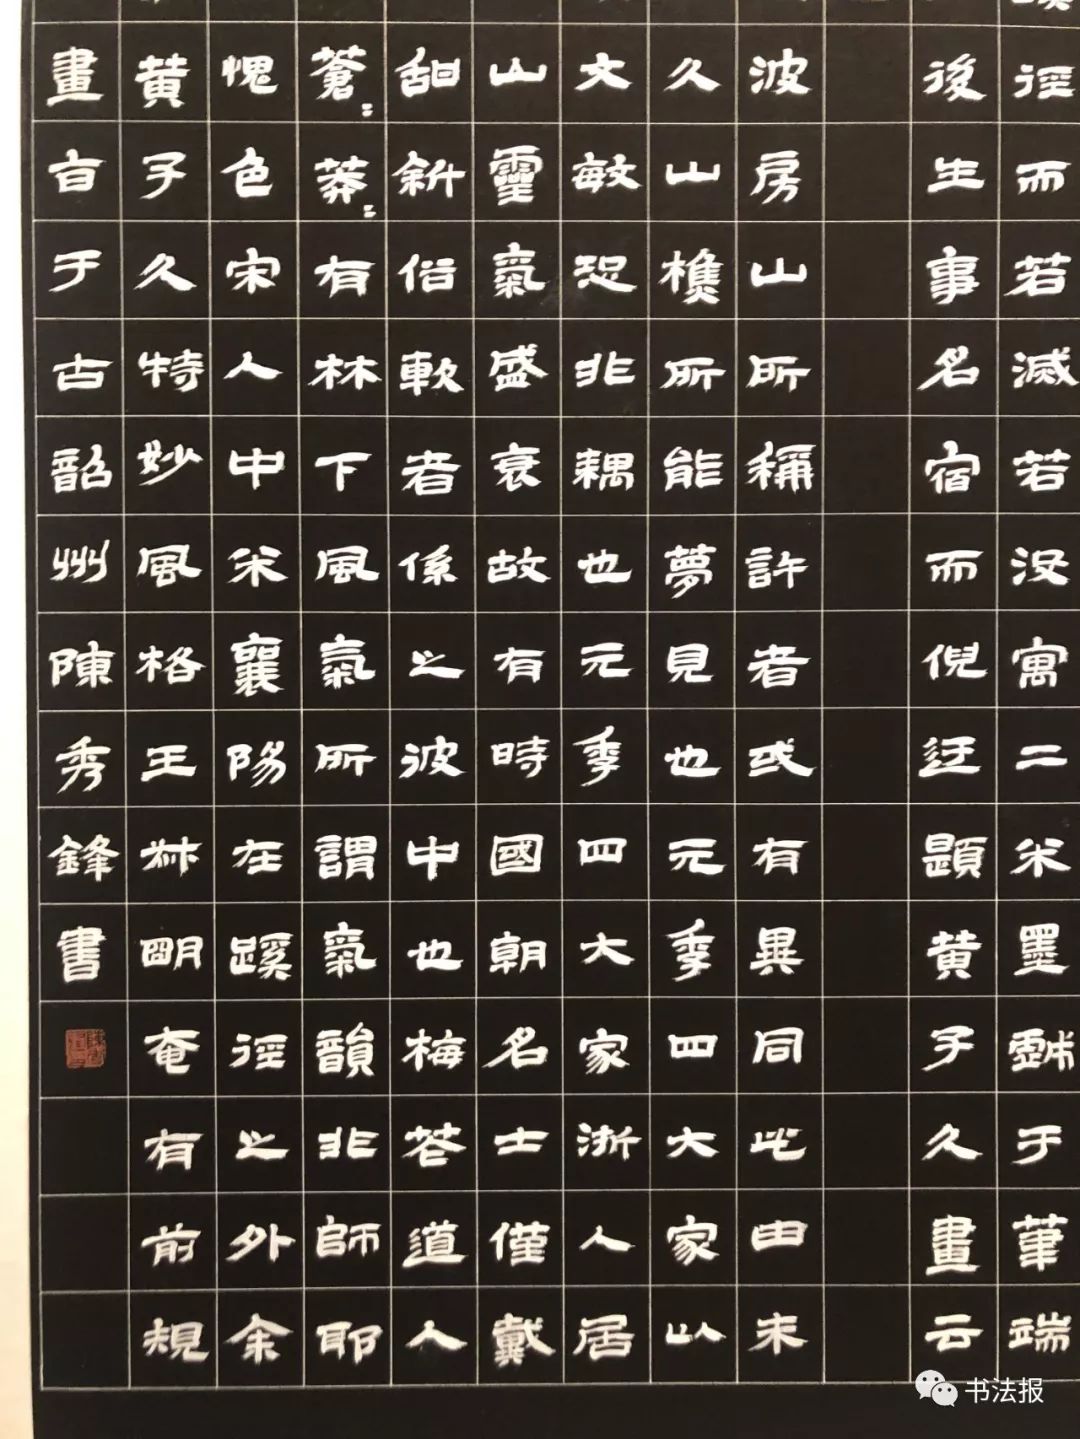 徑而若滅若没寓二米墨戲于筆端
後生事名宿而倪迂題黄子久畫云
波房山所稱許者或有異同此由未
久山樵所能夢見也元季四大家以
文敏恐非耦也元季四大家浙人居
山靈氣盛衰故有時國朝名士僅戴
甜斜俗軟者係之波中也梅花道人
蒼蒼莽莽有林下風氣所謂氣韻非師耶
愧色宋人中米襄陽在蹊徑之外余
黄子久特妙風格王叔明奄有前規
畫旨于古韶州陳秀鋒書
书法报